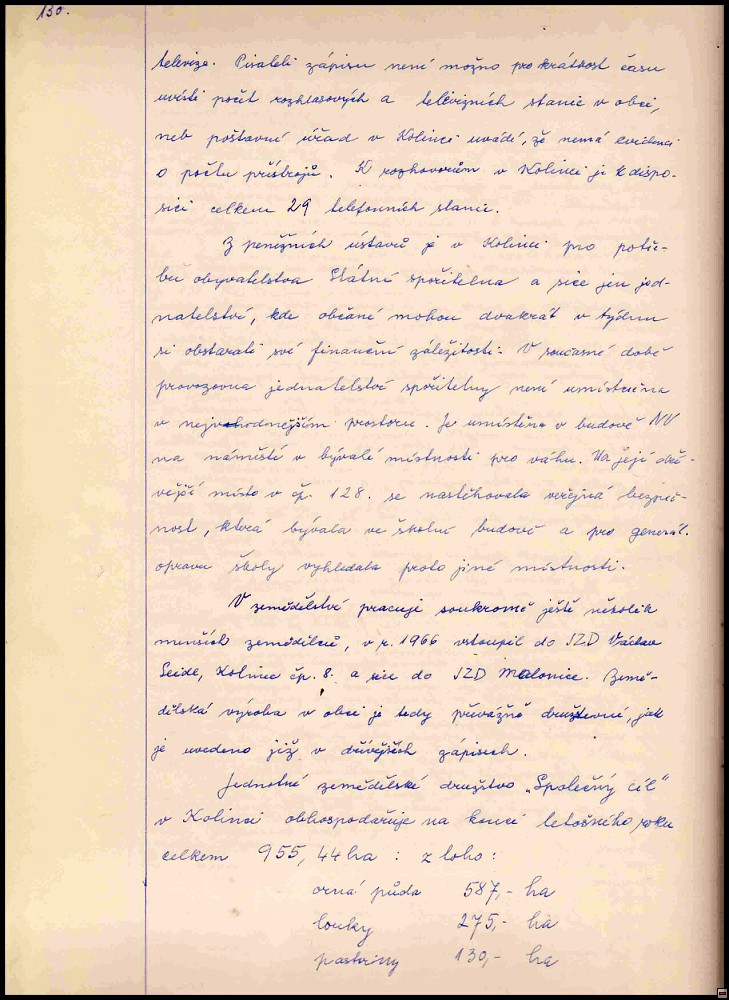 130.
televize. Pisateli zápisu není možno pro krátkost času
uvésti počet rozhlasových a televizních stanic v obci,
neb poštovní úřad v Kolinci uvádí, že nemá evidenci
o počtu přístrojů. K rozhovorům v Kolinci je k dispo-
sici celkem 29 telefonních stanic.
Z peněžních ústavů je v Kolinci pro potře-
bu obyvatelstva Státní spořitelna a sice jen jed-
natelství, kde občané mohou dvakrát v týdnu
si obstarati své finanční záležitosti. V současné době
provozovna jednatelství spořitelny není umístěna
v nejvhodnějším prostoru. Je umístěna v budově NV
na náměstí v bývalé místnosti pro váhu. Na její dří-
vější místo v čp. 128. se nastěhovala veřejná bezpeč-
nost, která bývala ve školní budově a pro generál.
opravu školy vyhledala proto jiné místnosti.
V zemědělství pracuje soukromě ještě několik
menších zemědělců, v r. 1966 vstoupil do JZD Václav
Seidl, Kolinec čp. 8. a sice do JZD Malonice. Země-
dělská výroba v obci je tedy převážně družstevní, jak
je uvedeno již v dřívějších zápisech.
Jednotné zemědělské družstvo „Společný cíl"
v Kolinci obhospodařuje na konci letošního roku
celkem 955,44 ha : z toho:
orná půda 587,- ha
louky 275,- ha
pastviny 130,- ha